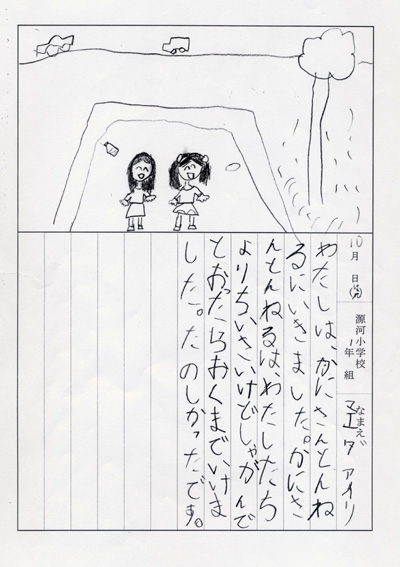 10月 日
源河小学校
1年 組
なまえ
マエタ アイリ
わたしは、かにさんとんね
るにいきました。かにさ
んとんねるは、わたしたち
よりちいさいけどしゃがんで
とおったらおくまでいけま
した。たのしかったです。